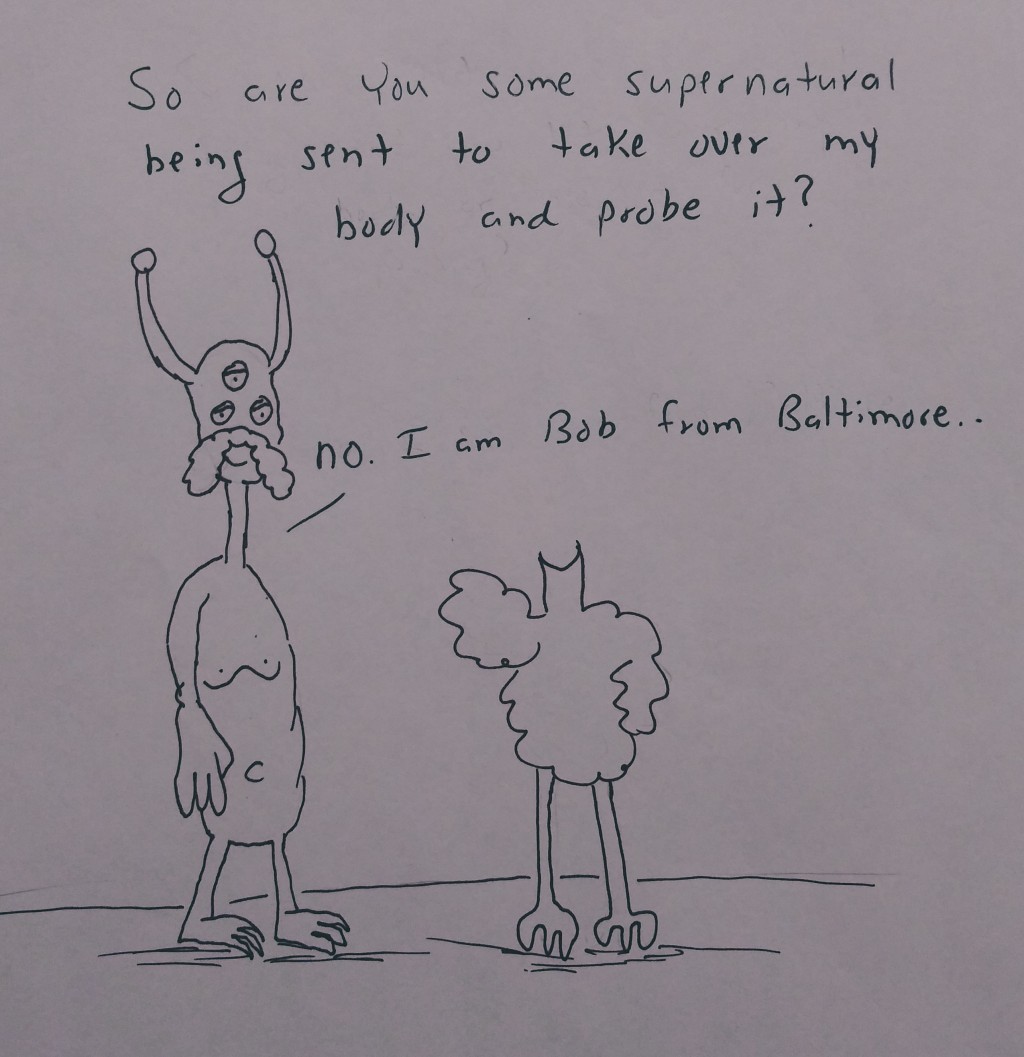 So are you some supernatural
being sent to take over my
body and probe it?
no. I am Bob from Baltimore..